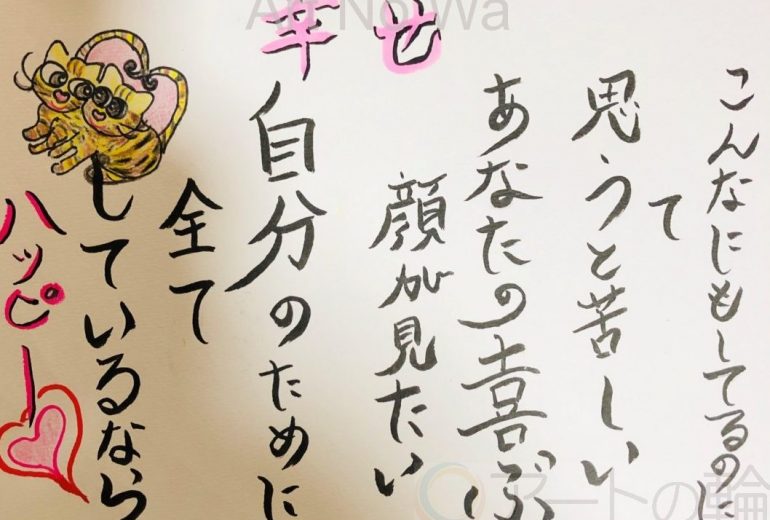 こんなにもしてるのに
て
思うと苦しい
あなたの喜ぶ
顔が見たい
幸せ
自分のために
全て
しているなら
ハッピー
Art No Wa
アートの輪